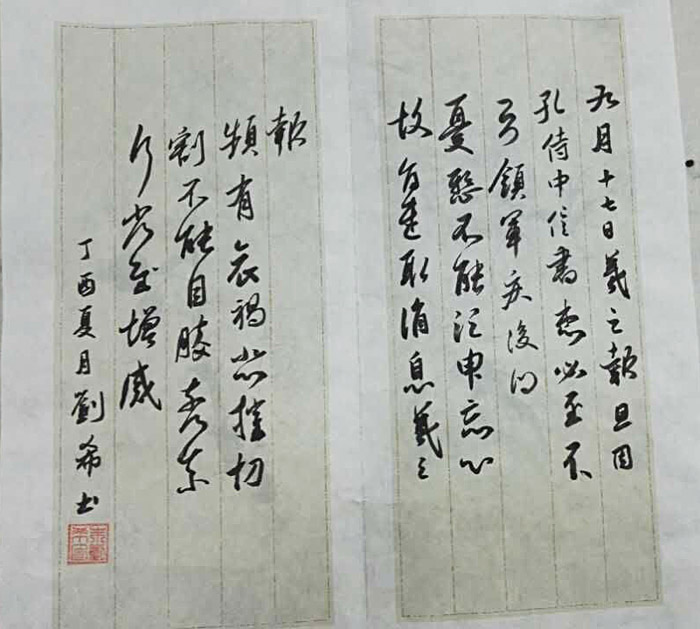 九月十七日羲之報且因
孔侍中信書想必至不
知領軍疾後問
憂懸不能須臾忘心
故旨遣取消息羲之
報
頻有哀禍悲摧切
割不能自勝奈何奈
何省慰增感
丁酉夏月劉希書